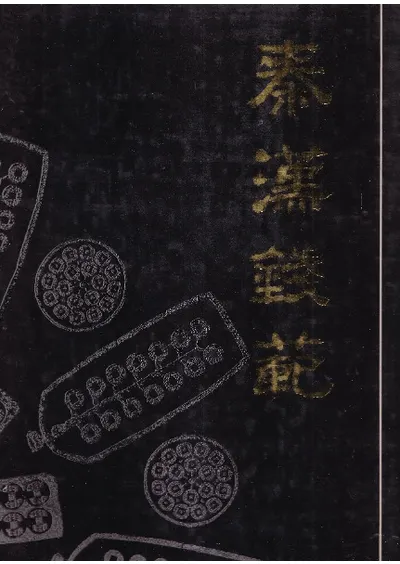 秦漢錢範